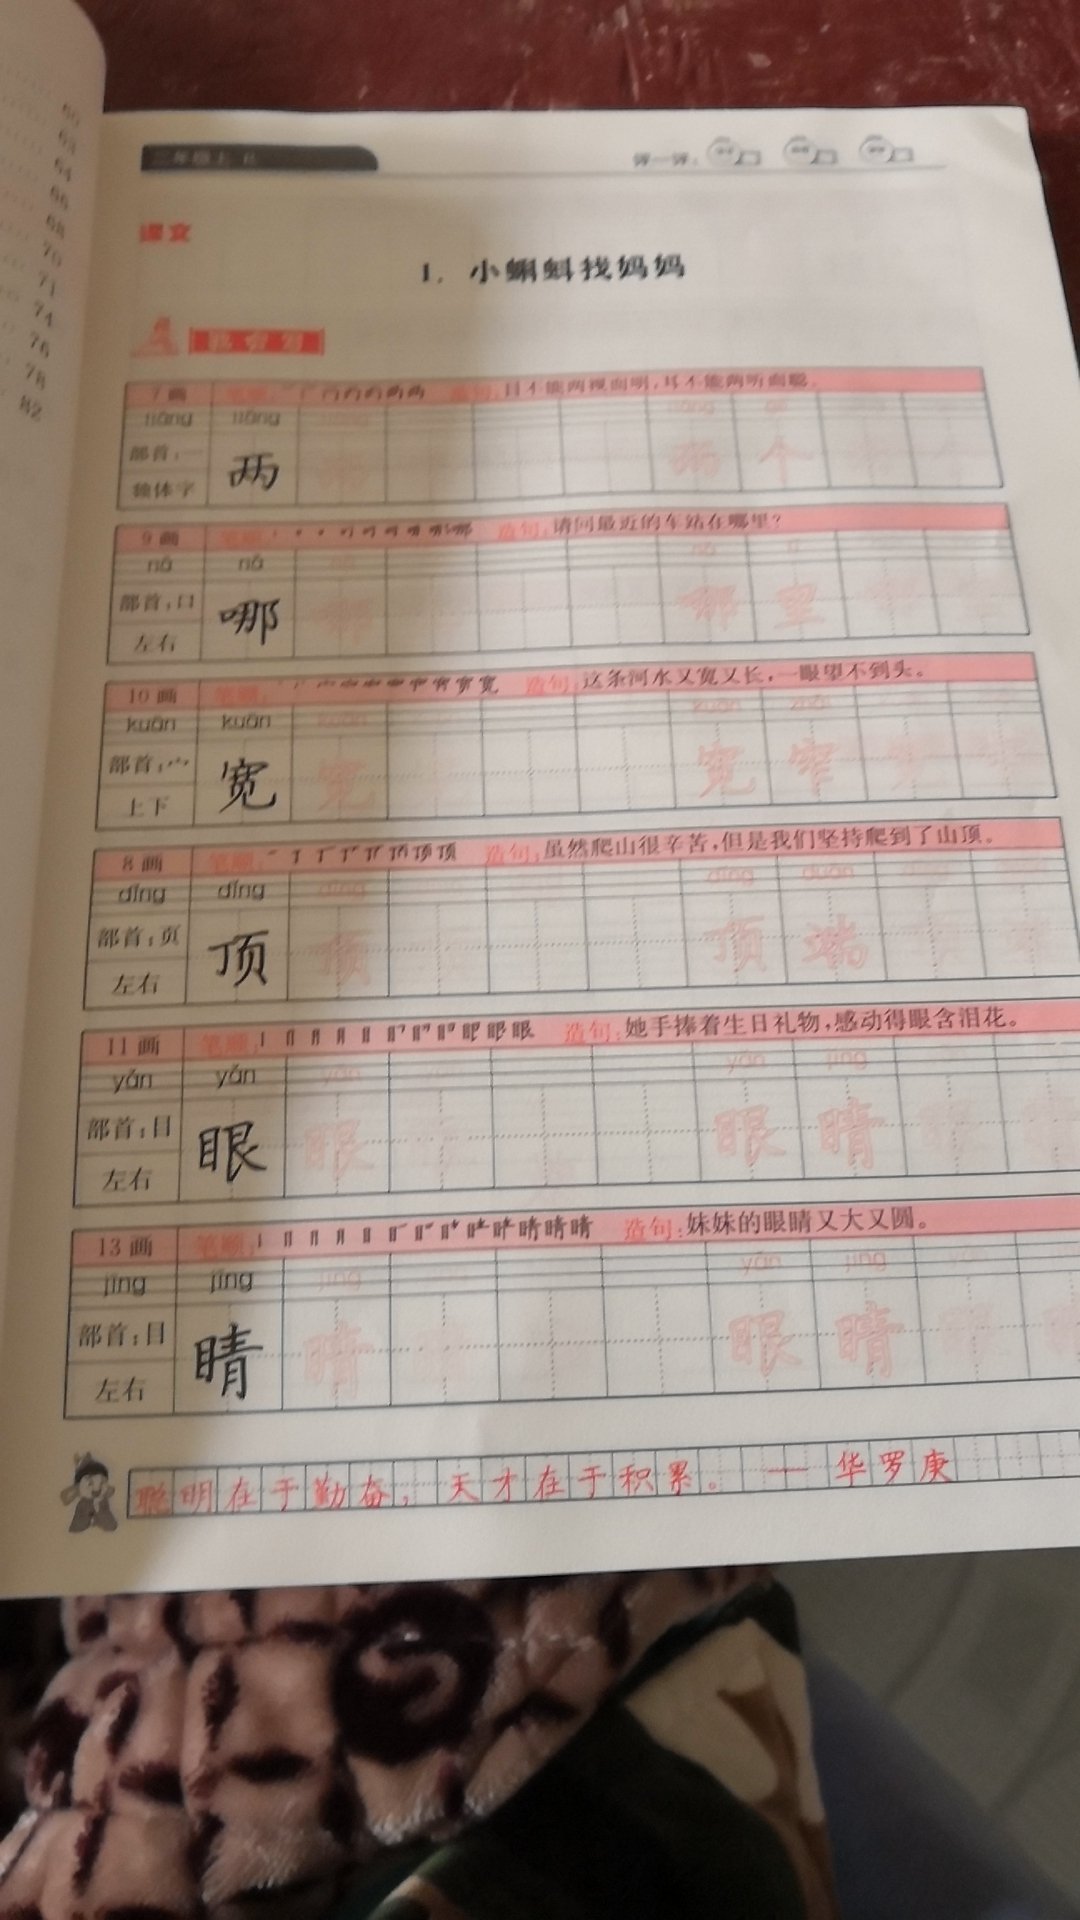 60
63
64
66
68
70
71
74
76
78
82
二年级上 R
评一评:
课文
1. 小蝌蚪找妈妈
我会写
7画 笔顺: 造句:目不能两视而明,耳不能两听而聪。
liǎng liǎng liǎng gè
部首:一 两 两 两 个
独体字
9画 笔顺: 造句:请问最近的车站在哪里?
nǎ nǎ nǎ lǐ
部首:口 哪 哪 哪 里
左右
10画 笔顺: 造句:这条河水又宽又长,一眼望不到头。
kuān kuān kuān kuān zhǎi
部首:宀 宽 宽 宽 窄
上下
8画 笔顺: 造句:虽然爬山很辛苦,但是我们坚持爬到了山顶。
dǐng dǐng dǐng dǐng duān
部首:页 顶 顶 顶 端
左右
11画 笔顺: 造句:她手捧着生日礼物,感动得眼含泪花。
yǎn yǎn yǎn yǎn jīng
部首:目 眼 眼 眼 睛
左右
13画 笔顺: 造句:妹妹的眼睛又大又圆。
jīng jīng jīng yǎn jīng
部首:目 睛 睛 眼 睛
左右
聪明在于勤奋,天才在于积累。—华罗庚